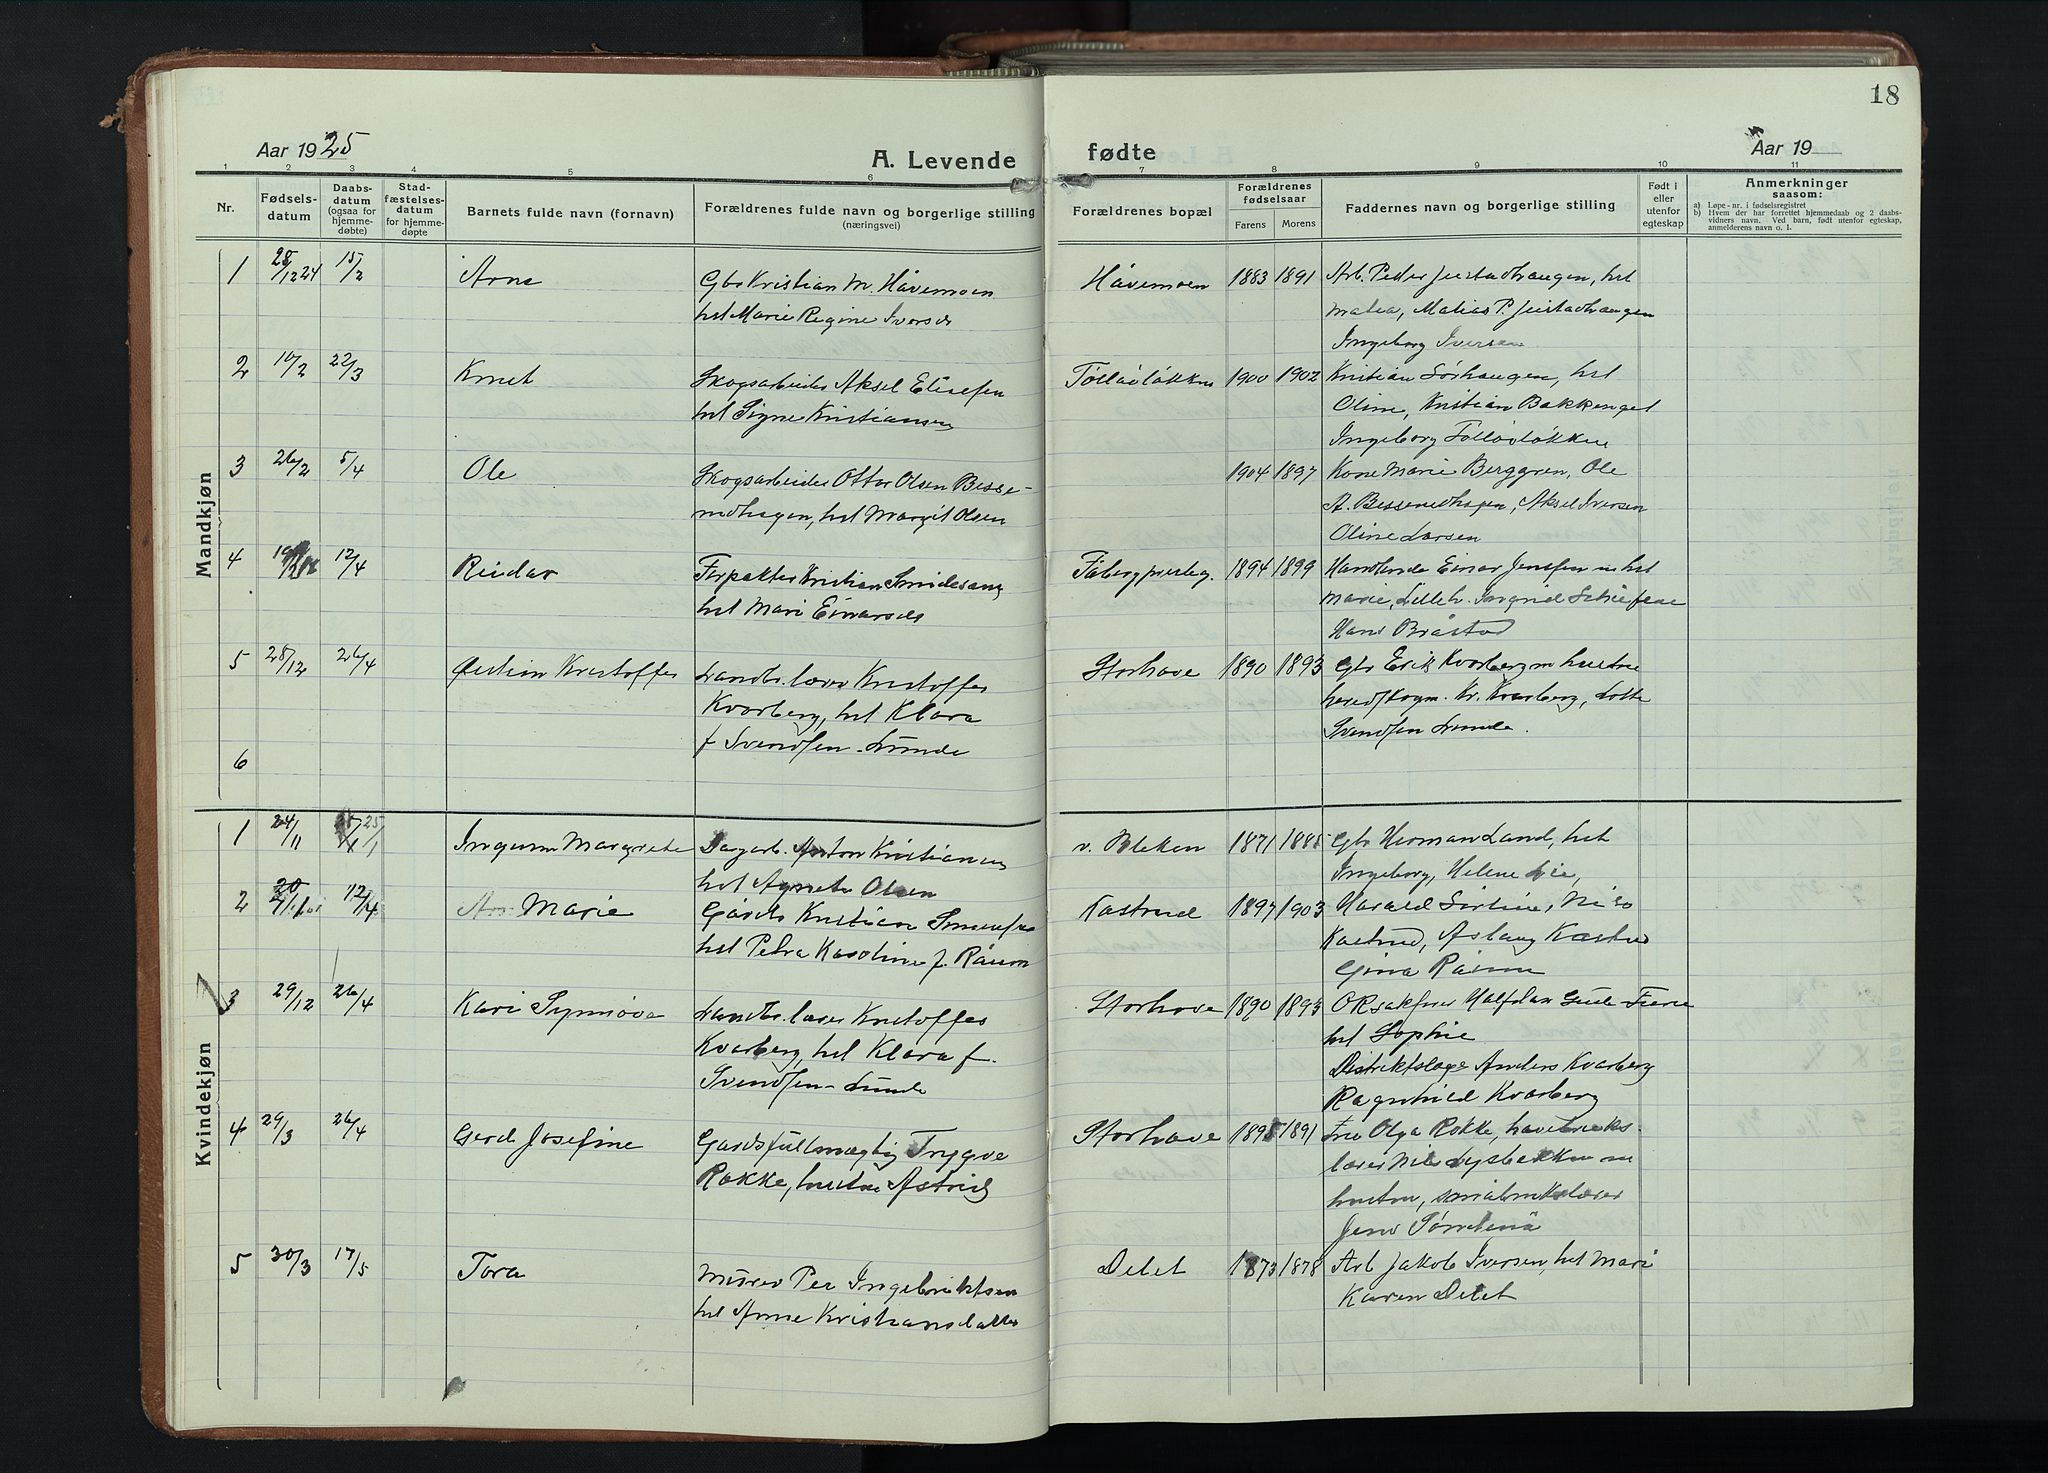 18
Aar 1925
A. Levende fødte
Aar 19
1 2 3 4 5 6 7 8 9 10 11
Nr.
Fødsels-
datum
Daabs-
datum
(ogsaa for
hjemme-
døbte)
Stad-
fæstelses-
datum
for hjemme-
døpte
Barnets fulde navn (fornavn)
Forældrenes fulde navn og borgerlige stilling
(næringsvei)
Forældrenes bopæl
Forældrenes
fødselsaar
Farens Morens
Faddernes navn og borgerlige stilling
Født i
eller
utenfor
egteskap
Anmerkninger
saasom:
a) Løpe-nr. i fødselsregistret
b) Hvem der har forrettet hjemmedaab og 2 daabs-
vidners navn. Ved barn, født utenfor egteskap,
anmelderens navn o. l.
Mandkjøn
1 28/12 24 15/2 Arne Gbr Kristian M. Håvemoen Håvemoen 1883 1891 Arb. Peder Jevstadhaugen, hst
hst Marie Regine Iversdr Matea, Matias P. Jevstadhaugen
Ingeborg Iversen
2 10/2 22/3 Knut Skogsarbeider Aksel Ellefsen 1900 1902 Kristian Sørhaugen, hst
hst Signe Kristiansen Oline, Kristian Bakkenget
Ingeborg
3 26/2 5/4 Ole Skogsarbeider Ottar Olsen Besse- 1904 1897 Kone Marie Berggren, Ole
medhagen, hst Margit Olsen A. Bessemedhagen, Aksel Iversen
Oline Larsen
4 12/4 Reidar Forpakter Kristian 1894 1899 Handlende Einar Jensen m hst
hst Mari Einarsdr Marie, Lilleh. Ingrid
Hans Bråstad
5 28/12 26/4 Kristoffer Landbr. lærer Kristoffer Storhove 1890 1893 Gbr Erik Kvarberg m hustru
Kvarberg, hst Klara Kr. Kvarberg, Lotte
f Svendsen-Lunde Svendsen Lunde.
6
Kvindekjøn
1 24/11 25/1 Ingunn Margrete Dagarb. Anton Kristiansen v. Bleken 1871 1885 Gbr Herman Land, hst
hst Agnete Olsen Ingeborg, Helene Lie,
2 12/4 Marie Gårdbr Kristian Kastrud 1897 1903 Harald
hst Petra Karoline f. Råum Kastrud, Aslaug Kastrud
Gina Råum
3 29/12 26/4 Kari Synnøve Landbr. lærer Kristoffer Storhove 1890 1893 ORsakfører Halfdan
Kvarberg, hst Klara f. hst Sophie
Svendsen-Lunde Distriktslæge Anders Kvarberg
Ragnhild Kvarberg
4 29/3 26/4 Gerd Josefine Gardsfullmægtig Trygve Storhove 1895 1891 Fru Olga Rokke, havebruks-
Rokke, hustru Astrid lærer Nils Lysbakken m
hustru, småbrukslærer
Jens
5 30/3 17/5 Tora Murer Per Ingebriktsen Delet 1873 1878 Arb Jakob Iversen, hst Mari
hst Anne Kristiansdatter Karen Delet